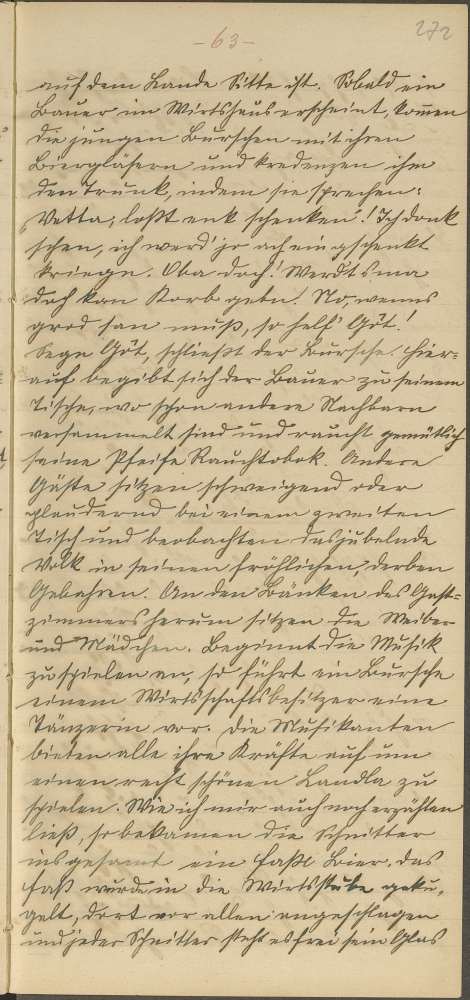 272
-63-
auf dem Lande Sitte ist. Sobald ein
Bauer im Wirtshaus erscheint, kom̅en
die jungen Burschen mit ihren
Biergläsern und kredenzen ihm
den Trunk, indem sie sprechen:
"Vetta, loßt enk schenken! Ich donk
schen, ich werd' jo ach ein gschenkt
kriegn. Oba doch! Werdt's ma
doch kan Korb gebn. No, wenns
grod san muß, so helf' Gôt!
Segn Gôt, schließt der Bursche. Hier=
auf begibt sich der Bauer zu seinem
Tische, wo schon andere Nachbarn
versammelt sind und raucht gemütlich
seine Pfeife Rauchtobok. Andere
Gäste sitzen schweigend oder
plaudernd bei einem zweiten
Tisch und beobachten das jubelnde
Volk in seinen fröhlichen, derben
Gebahren. An den Bänken des Gast=
zimmers herum sitzen die Weiber
und Mädchen. Beginnt die Musik
zu spielen an, so führt ein Bursche
einem Wirtschaftsbesitzer eine
Tänzerin vor. Die Musikanten
bieten alle ihre Kräfte auf um
einen recht schönen Landla zu
spielen. Wie ich mir auch noch erzählen
ließ, so bekamen die Schnitter
insgesamt ein Faßl Bier, das
Faß wurde in die Wirtsstube geku=
gelt, dort vor allen angeschlagen
und jeder Schnitter steht es frei sein Glas